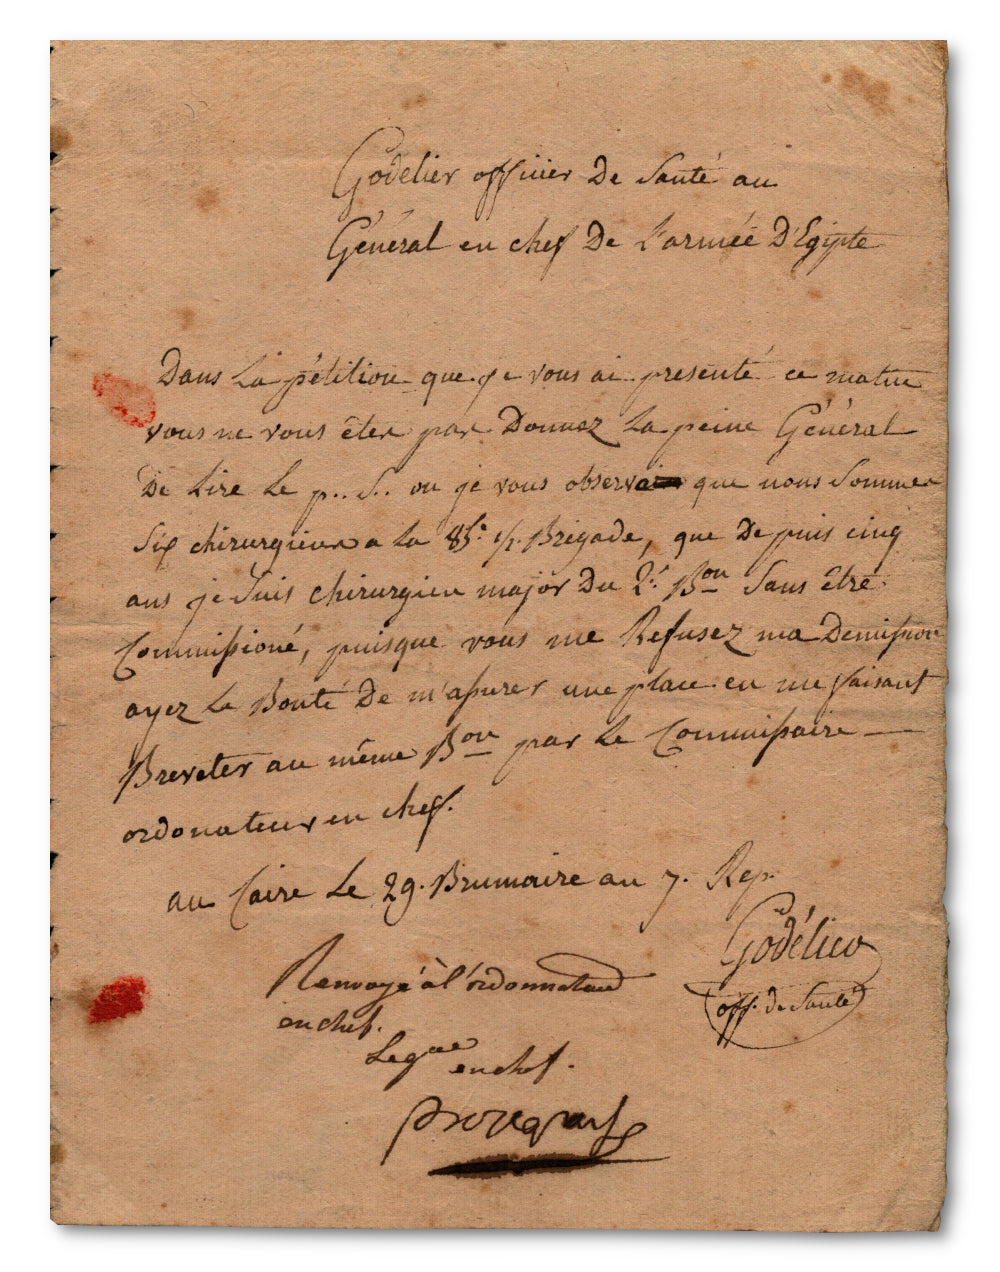 Godélier officier De Santé au
Général en chef De L'armée D'Egipte
Dans La pétition que je vous ai presenté ce matin
vous ne vous êtes pas Donnez La peine Général
De Lire Le p.. S.. ou je vous observai que nous Sommes
Six chirurgiens a La 85.e 1/2 Brigade, que Depuis cinq
ans je Suis chirurgien major Du 2.e Bon Sans être
Commissioné, puisque vous me Refusez ma Demission
ayez La Bonté De m'assurer une place en me faisant
Breveter au même Bon par Le Commissaire
ordonateur en chef.
au Caire Le 29. Brumaire an 7. Rep.
Godélier
off. de Santé
Renvoyé à l'ordonnateur
en chef.
Le gal
en chef.